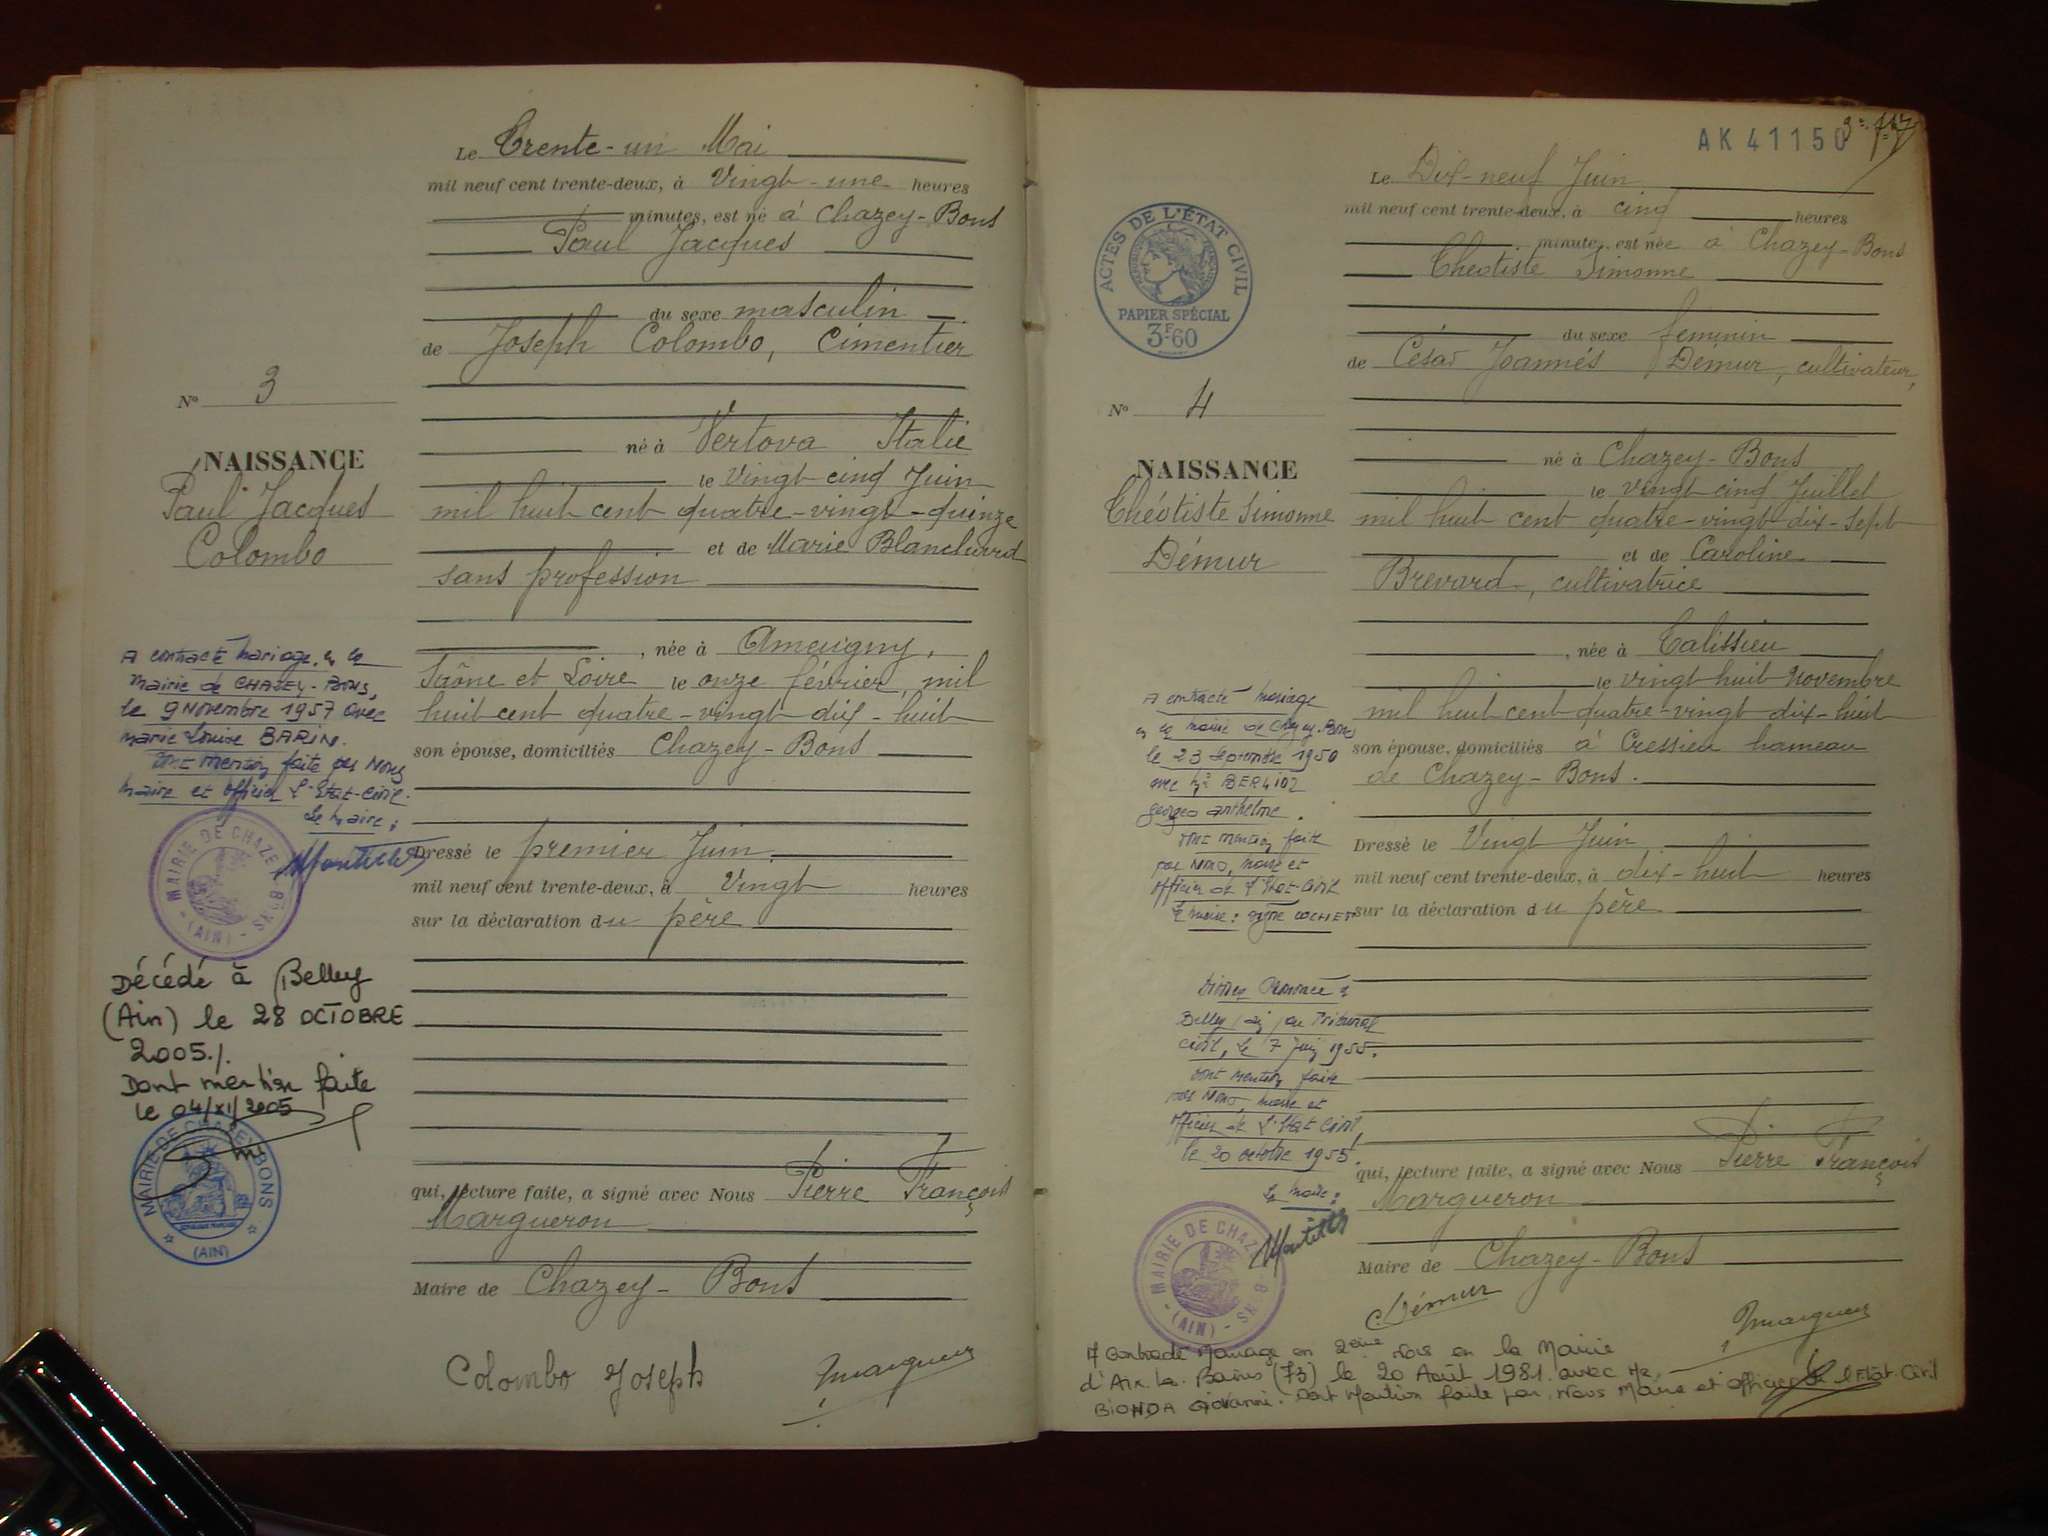 Le Trente-un Mai
mil neuf cent trente-deux, à Vingt-une heures
minutes, est né à Chazey-Bons
Paul Jacques
du sexe masculin
de Joseph Colombo, Cimentier
né à Vertova Italie
le vingt cinq Juin
mil huit cent quatre-vingt-quinze
et de Marie Blanchard
sans profession
, née à Ameugny,
Saône et Loire le onze février, mil
huit cent quatre-vingt dix-huit
son épouse, domiciliés Chazey-Bons
Dressé le premier Juin,
mil neuf cent trente-deux, à Vingt heures
sur la déclaration du père
qui, lecture faite, a signé avec Nous Pierre François
Margueron
Maire de Chazey-Bons
Colombo Joseph
Margueron
N° 3
NAISSANCE
Paul Jacques
Colombo
A contracté mariage, en la
Mairie de CHAZEY-BONS,
le 9 Novembre 1957 avec
Marie Louise BARIN.
Dont mention faite par Nous
Maire et Officier d'Etat-Civil.
Le Maire:
MAIRIE DE CHAZEY-BONS
(AIN)
Décédé à Belley
(Ain) le 28 OCTOBRE
2005./.
Dont mention faite
le 04/XI/2005
MAIRIE DE CHAZEY-BONS
(AIN)
AK 41150
ACTES DE L'ÉTAT CIVIL
PAPIER SPÉCIAL
3F60
Le Dix-neuf Juin
mil neuf cent trente-deux, à cinq heures
minute, est née à Chazey-Bons
Théotiste Simonne
du sexe féminin
de César Joannès Démur, cultivateur,
né à Chazey-Bons
le vingt cinq Juillet
mil huit cent quatre-vingt dix-sept
et de Caroline
Brevard, cultivatrice
, née à Talissieu
le vingt huit Novembre
mil huit cent quatre-vingt dix-huit
son épouse, domiciliés à Cressieu hameau
de Chazey-Bons.
Dressé le Vingt Juin,
mil neuf cent trente-deux, à dix-huit heures
sur la déclaration du père
qui, lecture faite, a signé avec Nous Pierre François
Margueron
Maire de Chazey-Bons
Démur
Margueron
N° 4
NAISSANCE
Théotiste Simonne
Démur
A contracté mariage
en la mairie de Chazey-Bons
le 23 septembre 1950
avec Mr BERLIOZ
Georges Anthelme.
Dont mention faite
par Nous, maire et
Officier de l'Etat-Civil
Le maire: signé COCHET
Divorce prononcé à
Belley (Ain) au Tribunal
civil, le 7 juin 1955.
Dont mention faite
par Nous, maire et
Officier de l'Etat Civil,
le 20 octobre 1955.
Le maire:
MAIRIE DE CHAZEY-BONS
(AIN)
A Contracté Mariage en 2ème Noces en la Mairie
d'Aix-Les-Bains (73) le 20 Août 1981 avec Mr
BIONDA Giovanni. Dont Mention faite par Nous Maire et Officier de l'Etat-Civil